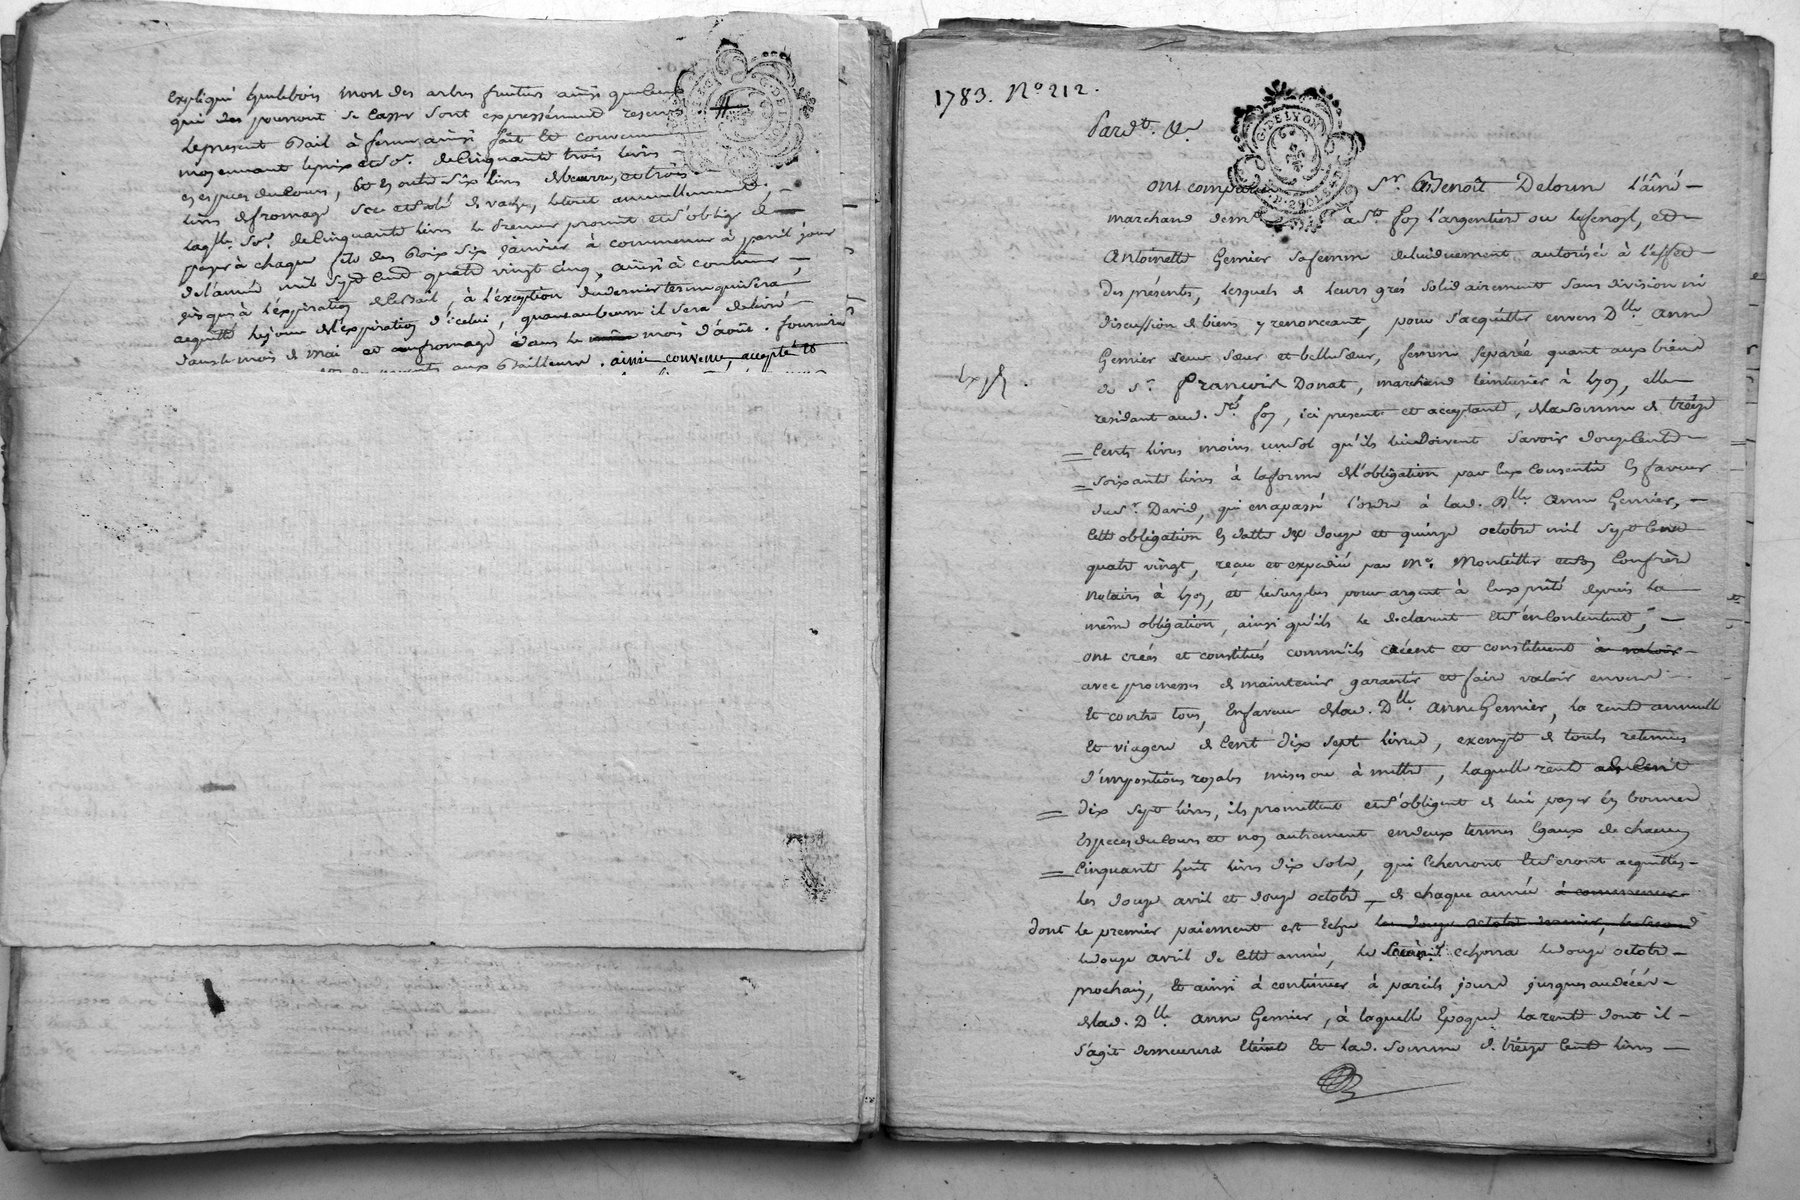 expliqué bois mort des arbres fruitiers ainsi que
qui des pourront se casser sont expressément reservés
le present Bail à ferme ainsi fait et convenu
moyennant le prix et so.e de cinquante trois livres
en espèces du cours, et en outre six livres de beurre, et trois
livres de fromage sec et salé de vache, le tout annuellement,
laq.lle so.e de cinquante livres le preneur promet et s'oblige de
payer à chaque fête des Rois six janvier à commencer à pareil jour
de l'année mil sept cent quatre vingt cinq, ainsi à continuer
jusques à l'expiration de ce Bail, à l'exception du dernier terme qui sera
acquitté le jour de l'expiration d'icelui, quant au beurre il sera delivré
dans le mois de mai et au fromage dans le mois d'août. fournira
aux Bailleurs. ainsi convenu, accepté et
1783. N° 212.
Pard.t &a
ont comparu S.r Benoît Delorme l'aîné
marchand dem.t à S.te foy l'argentière ou le fenoyl, et
Antoinette Gernier sa femme de lui duement autorisée à l'effet
des présentes, lesquels de leurs grés solidairement sans division ni
discussion de biens y renonceant, pour s'acquitter envers D.lle Anne
Gernier leur sœur et belle sœur, femme separée quant aux biens
de S.r François Donat, marchand teinturier à Lyon, elle
residant aud. S.te foy, ici presente et acceptant, de la somme de treize
cents livres moins un sol qu'ils lui doivent savoir douze cents
soixante livres à la forme de l'obligation par eux consentie en faveur
du S.r David, qui en a passé l'ordre à lad. D.lle Anne Gernier,
cette obligation en datte des douze et quinze octobre mil sept cent
quatre vingt, reçue et expediée par M.e Monteillier et son confrère
notaires à Lyon, et le surplus pour argent à eux prêté depuis la
même obligation, ainsi qu'ils le declarent et s'en contentent,
ont créés et constitués comm'ils créent et constituent à valoir
avec promesses de maintenir garantir et faire valoir envers
et contre tous, en faveur de lad. D.lle Anne Gernier, la rente annuelle
et viagere de cent dix sept livres, exempte de toutes retenues
d'impositions royales mises ou à mettre, laquelle rente de cent
dix sept livres, ils promettent et s'obligent de lui payer en bonnes
espèces du cours et non autrement en deux termes egaux de chacun
cinquante huit livres dix sols, qui echerront et seront acquittés
les douze avril et douze octobre de chaque année à commencer
dont le premier paiement est echu le douze octobre dernier, le second
le douze avril de cette année, le second echerra le douze octobre
prochain, et ainsi à continuer à pareils jours jusques au décès
de lad. D.lle Anne Gernier, à laquelle Epoque la rente dont il
s'agit demeurera eteinte et lad. somme de treize cents livres
G. DE LYON